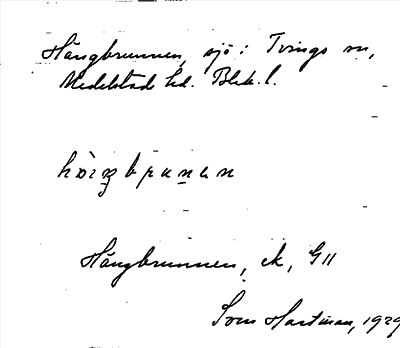 Hängbrunnen, sjö i Tvings sn,
Medelstad hd. Blek. l.
Hängbrunnen, ek, G11
Sven Hartman, 1929